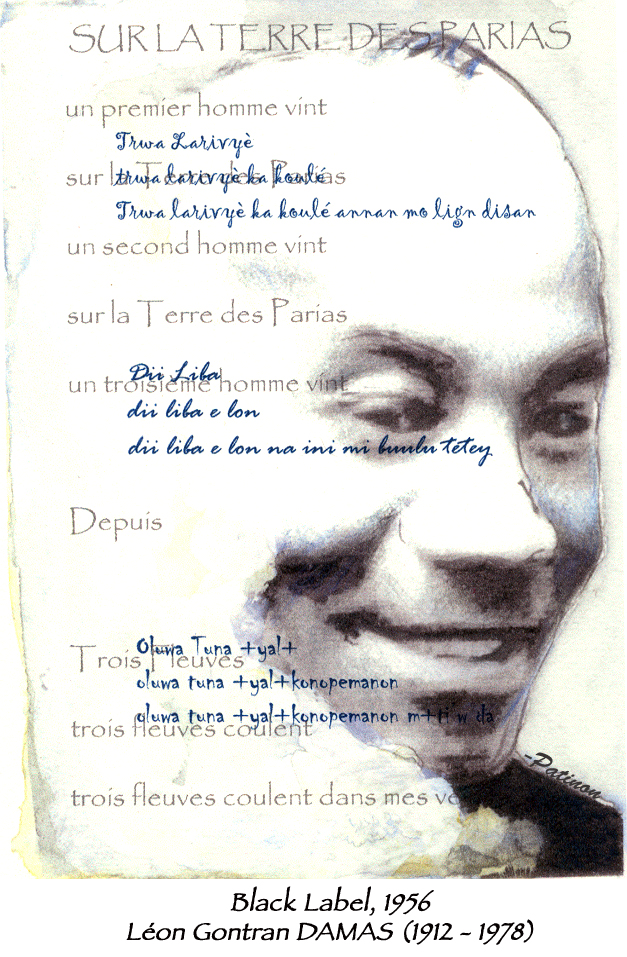 SUR LA TERRE DES PARIAS
un premier homme vint
Trwa Larivyè
sur la Terre des Parias
trwa larivyè ka koulé
Trwa larivyè ka koulé annan mo lign disan
un second homme vint
sur la Terre des Parias
Dii Liba
un troisième homme vint
dii liba e lon
dii liba e lon na ini mi buulu tetey
Depuis
Oluwa Tuna +yal+
Trois Fleuves
oluwa tuna +yal+konopemanon
oluwa tuna +yal+konopemanon
trois fleuves coulent
-Patinou
trois fleuves coulent dans mes
Black Label, 1956
Léon Gontran DAMAS (1912 - 1978)